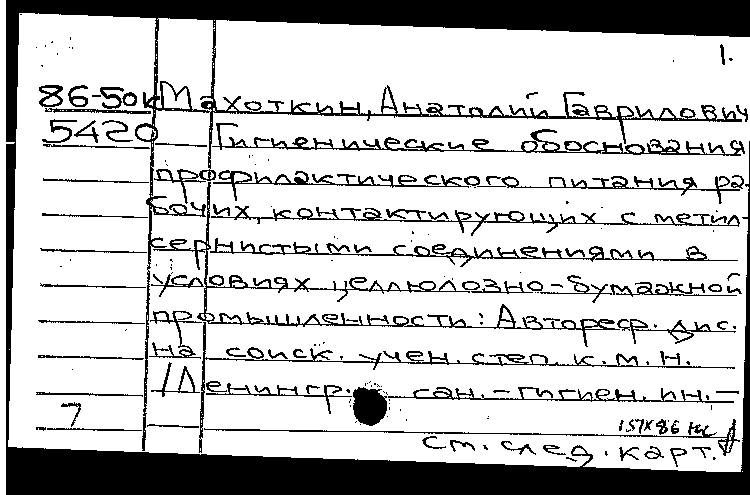 1.
86-50к Махоткин, Анаталий Гаврилович
5420 Гигиенические обоснования
профилактического питания ра-
бочих, контактирующих с метил-
сернистыми соединениями в
условиях целлюлозно-бумажной
промышленности: Автореф. дис.
на соиск. учен. степ. к.м.н.
/Ленингр. сан.-гигиен. ин.-
7
см. след. карт.